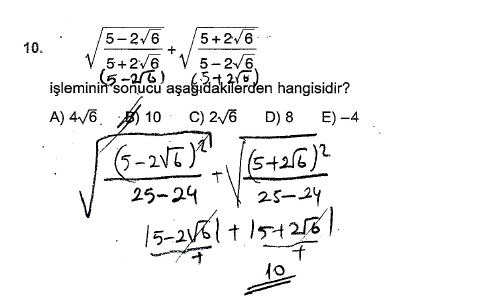 10. √((5-2√6)/(5+2√6)) + √((5+2√6)/(5-2√6))
(5-2√6) (5+2√6)
işleminin sonucu aşağıdakilerden hangisidir?
A) 4√6 B) 10 C) 2√6 D) 8 E) -4
√((5-2√6)²/(25-24)) + √((5+2√6)²/(25-24))
|5-2√6| + |5+2√6|
+ +
10